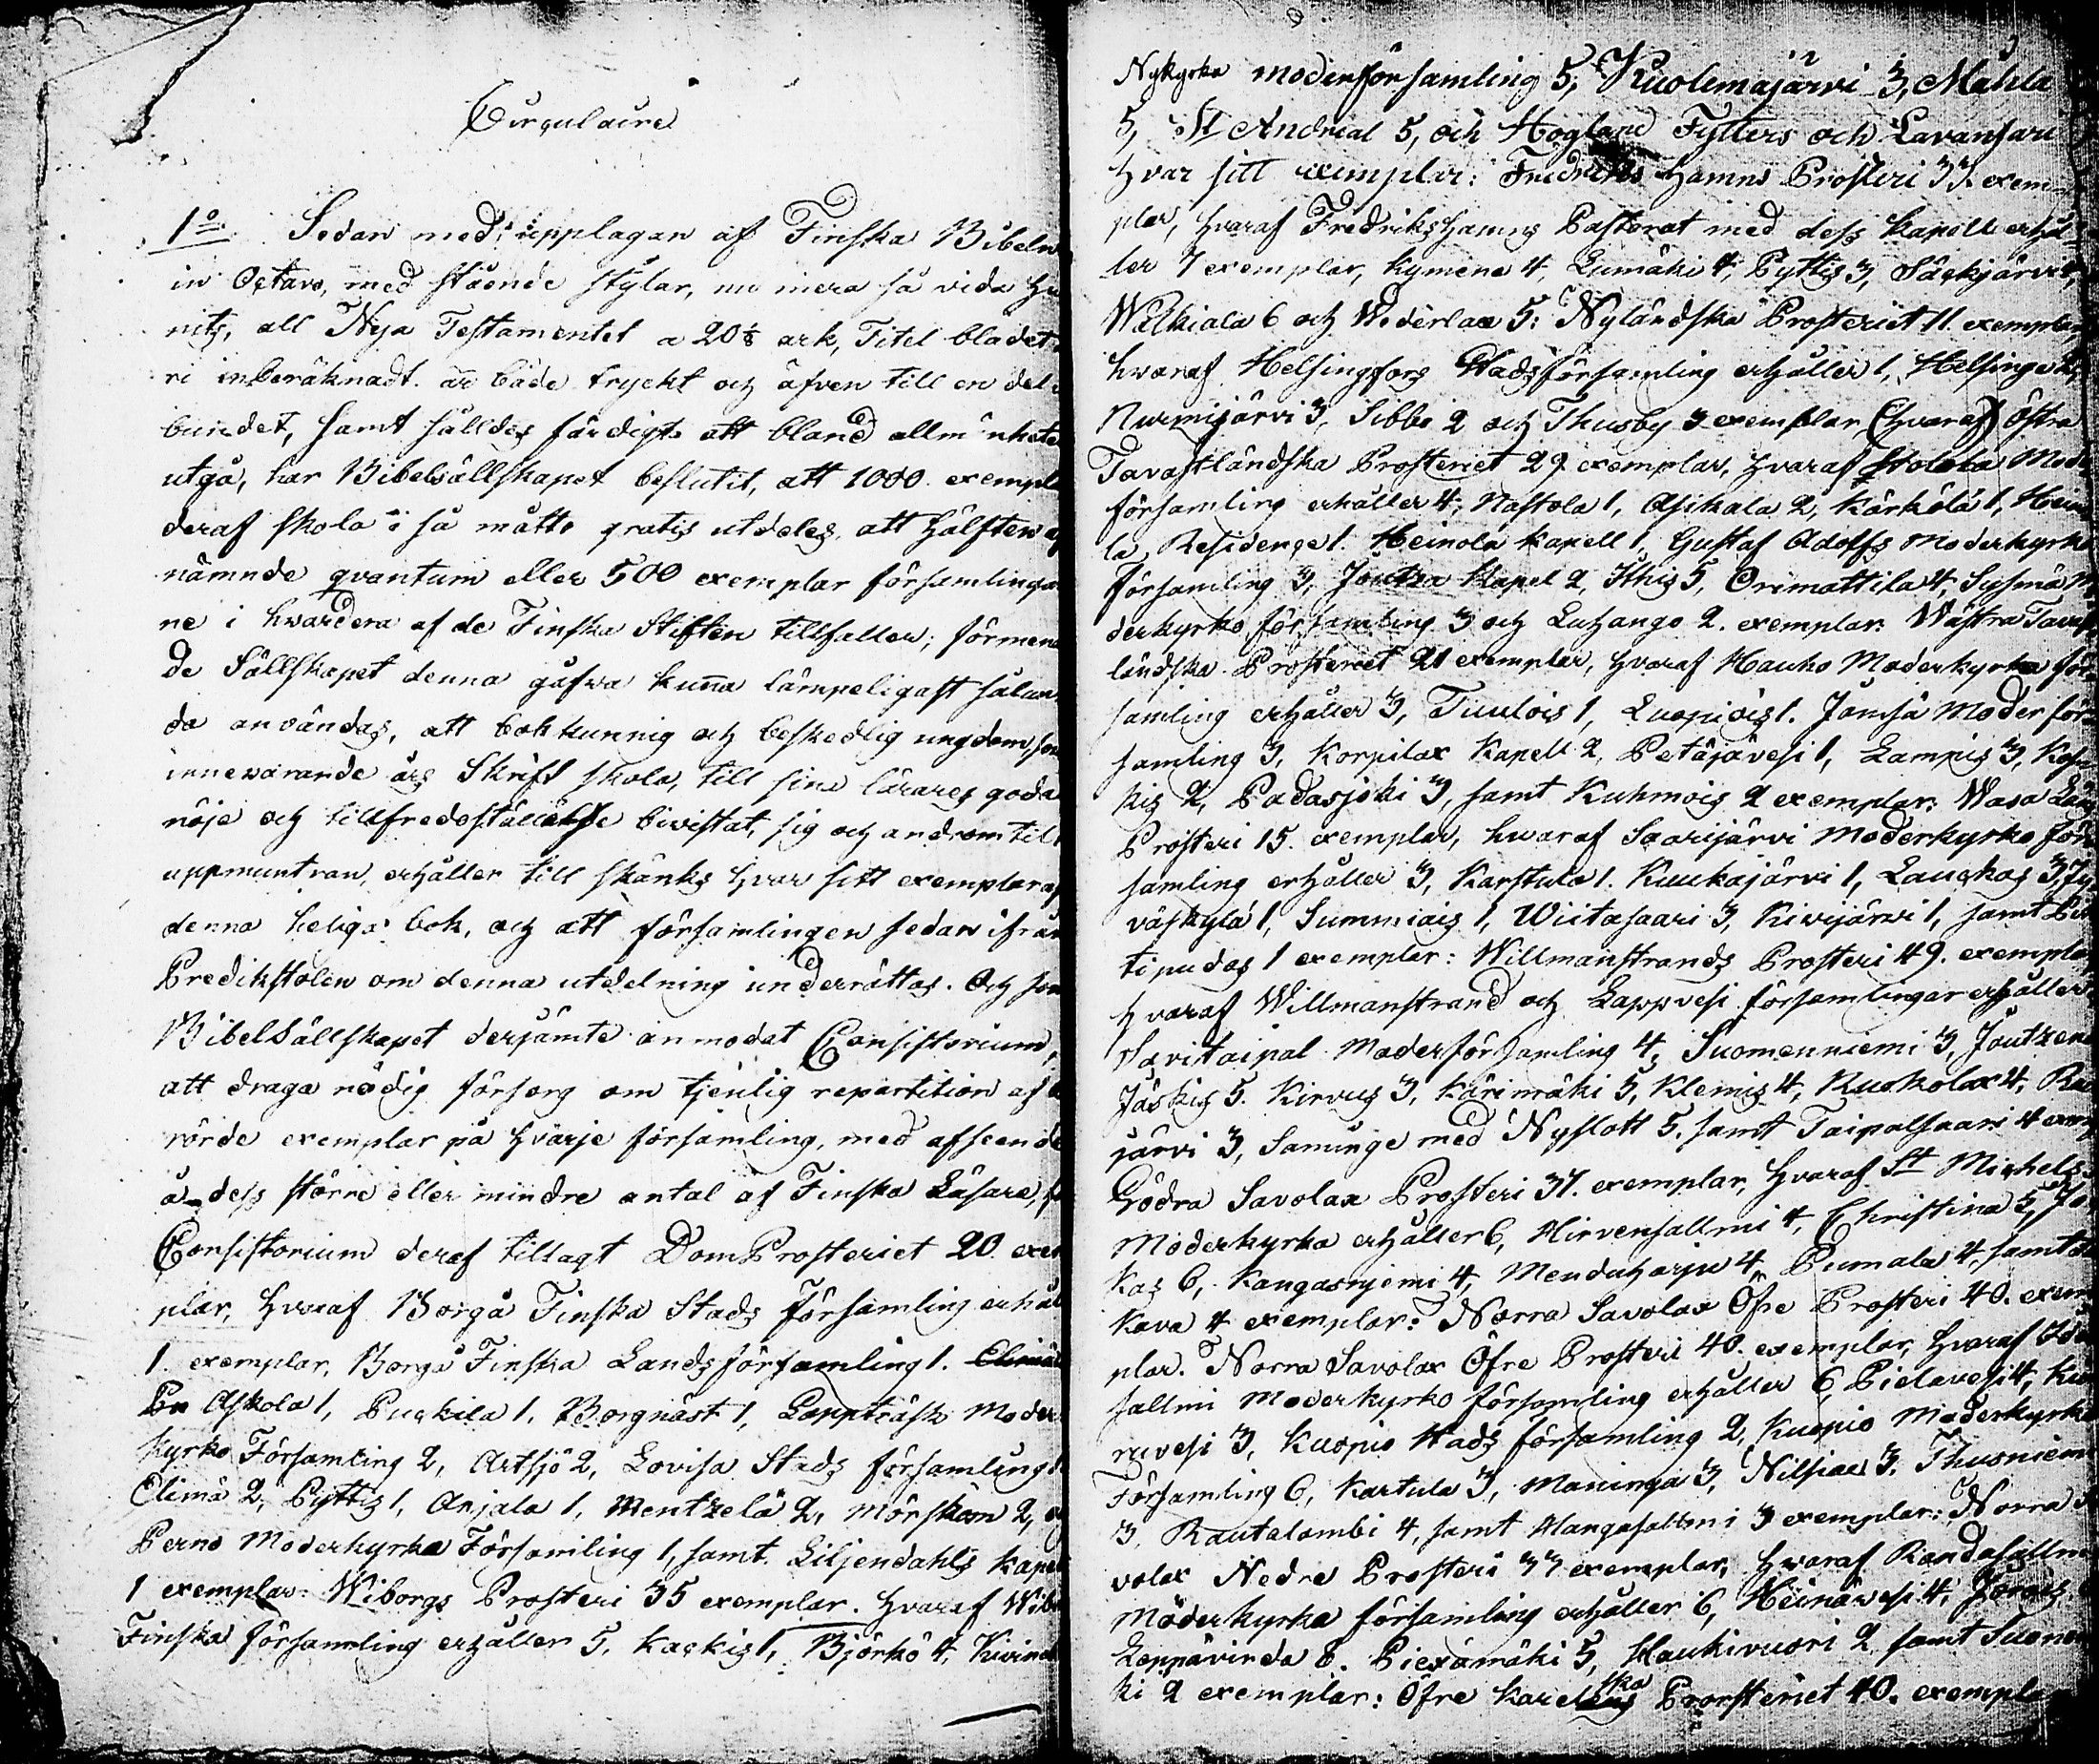 Circulaire
1o Sedan med upplagan af Finska Bibeln
in Octavo, med stående stylar, nu mera så vida hu
nits, all Nya Testamentet a 20 1/8 ark, Titel bladet
ri inberäknadt är både tryckt och äfven till en del
bundet, samt således färdigt att bland allmänhete
utgå, har Bibelsällskapet beslutit, att 1000 exempl
deraf skola i så måtto gratis utdelas, att hälften af
nämnde qvantum eller 500 exemplar församlinga
ne i hwardera af de Finska Stiften tillfaller; förmena
de Sällskapet denna gåfwa kunna lämpeligast sålun
da användas, att bokkunnig och beskedlig ungdom, som
innewarande års Skrift skola, till sine lärares goda
nöje och tillfredsställelse bivistat, sig och androm till
uppmuntran, erhåller till skänks hvar sitt exemplar af
denna heliga bok, och att församlingen sedan ifrån
Predikstolen om denna utdelning underrättas. Och som
Bibelsällskapet derjämte anmodat Consistorium,
att draga nödig försorg om tjenlig repartition af
rörde exemplar på hvarje församling, med afseende
å dess större eller mindre antal af Finska Läsare,
Consistorium deraf tillagt DomProsteriet 20. exem
plar, hvaraf Borgå Finska Stads Församling erhål
1. exemplar, Borgå Finska Landsförsamling 1. Elimä
Pu Askola 1, Puckila 1, Borgnäst 1, Lappträsk Moder
kyrko Församling 2, Artsjö 2, Lovisa Stads församling
Elimä 2, Pyttis 1, Anjala 1, Mentzelä 2, Mörskom 2,
Perno Moderkyrka Församling 1, samt Liljendahls Kapell
1 exemplar: Wiborgs Prosteri 35 exemplar. hvaraf Wib
Finska församling erhåller 5, Kackis 1, Björkö 4, Kivine
Nykyrka moderförsamling 5, Kuolemajärvi 3, Mahla
5, St Andreal 5, och Högland Tytters och Lavansari
hvar sitt exemplar: Fredriks Hamns Prosteri 33. exem-
plar, hvaraf Fredrikshamns Pastorat med dess Kapell erhål-
ler 7 exemplar, Kymene 4, Lumäki 4, Pyttis 3, Säckjärvi
Walkiala 6 och Wederlax 5: Nyländska Prosteriet 11. exemplar
hwaraf Helsingfors Stadsförsamling erhåller 1, Helsinge
Nurmijärvi 3, Sibbo 2 och Thusby 3 exemplar, (hvaraf) östra
Tavastländska Prosteriet 29. exemplar, hvaraf Hollola Mod
församling erhåller 4, Nastola 1, Asikala 2, Kärkölä 1, Heino
la Residence 1. Heinola Kapell 1, Gustaf Adolfs Moderkyrko
församling 3, Joutza Kapel 2, Ithis 5, Orimattila 4, Sysmä M
derkyrko församling 3 och Luhango 2. exemplar: Wästra Tavast
ländska Prosteriet 21 exemplar, hvaraf Hauho Moderkyrka för
samling erhåller 3, Tuulois 1, Luopiois 1. Jämsä Moderför
samling 3, Korpilax Kapell 2, Petäjävesi 1, Lampis 3, Kos
kis 2, Padasjoki 3, samt Kuhmois 2 exemplar: Wasa Lä
Prosteri 15. exemplar, hwaraf Saarijärvi Moderkyrko för
samling erhåller 3, Karstula 1. Kuukajärvi 1, Lauckas 3, Jy
väskylä 1, Summiais 1, Wiitasaari 3, Kivijärvi 1, samt Pih
tipudas 1 exemplar: Willmanstrands Prosteri 49. exemplar
hvaraf Willmanstrand och Lappvesi församlingar erhåller
Savitaipal Moderförsamling 4, Suomenniemi 3, Joutzen
Jäskis 5. Kirvus 3, Kärimäki 5, Klemis 4, Ruokolax 4, Rau
järvi 3, Saminge med Nyslott 5, samt Taipalsaari 4 exem
Södra Savolax Prosteri 37. exemplar, hvaraf St Michels
Moderkyrka erhåller 6, Hirvensallmi 4, Christina 5, Jo
kas 6, Kangasnjemi 4, Menduharju 4, Pumala 4, samt
Kava 4 exemplar: Norra Savolax Öfre Prosteri 40. exem
plar. Norra Savolax Öfre Prosteri 40. exemplar, hvaraf Ide
sallmi Moderkyrko församling erhåller 6, Pielavesi 4, Kiu
ruvesi 3, Kuopio Stads församling 2, Kuopio Moderkyrko
Församling 6, Kartula 3, Maninga 3, Nilsiae 3, Thusniem
3, Rautalambi 4, samt Hangasallmi 3 exemplar: Norra
volax Nedre Prosteri 33 exemplar, hvaraf Randasallmi
Moderkyrka församling erhåller 6, Heinävesi 4, Jorois
Leppävirda 8. Piexämäki 5, Haukivuori 2 samt Suonen
ki 2 exemplar: Öfre Karelska Prorsteriet 40. exemplar